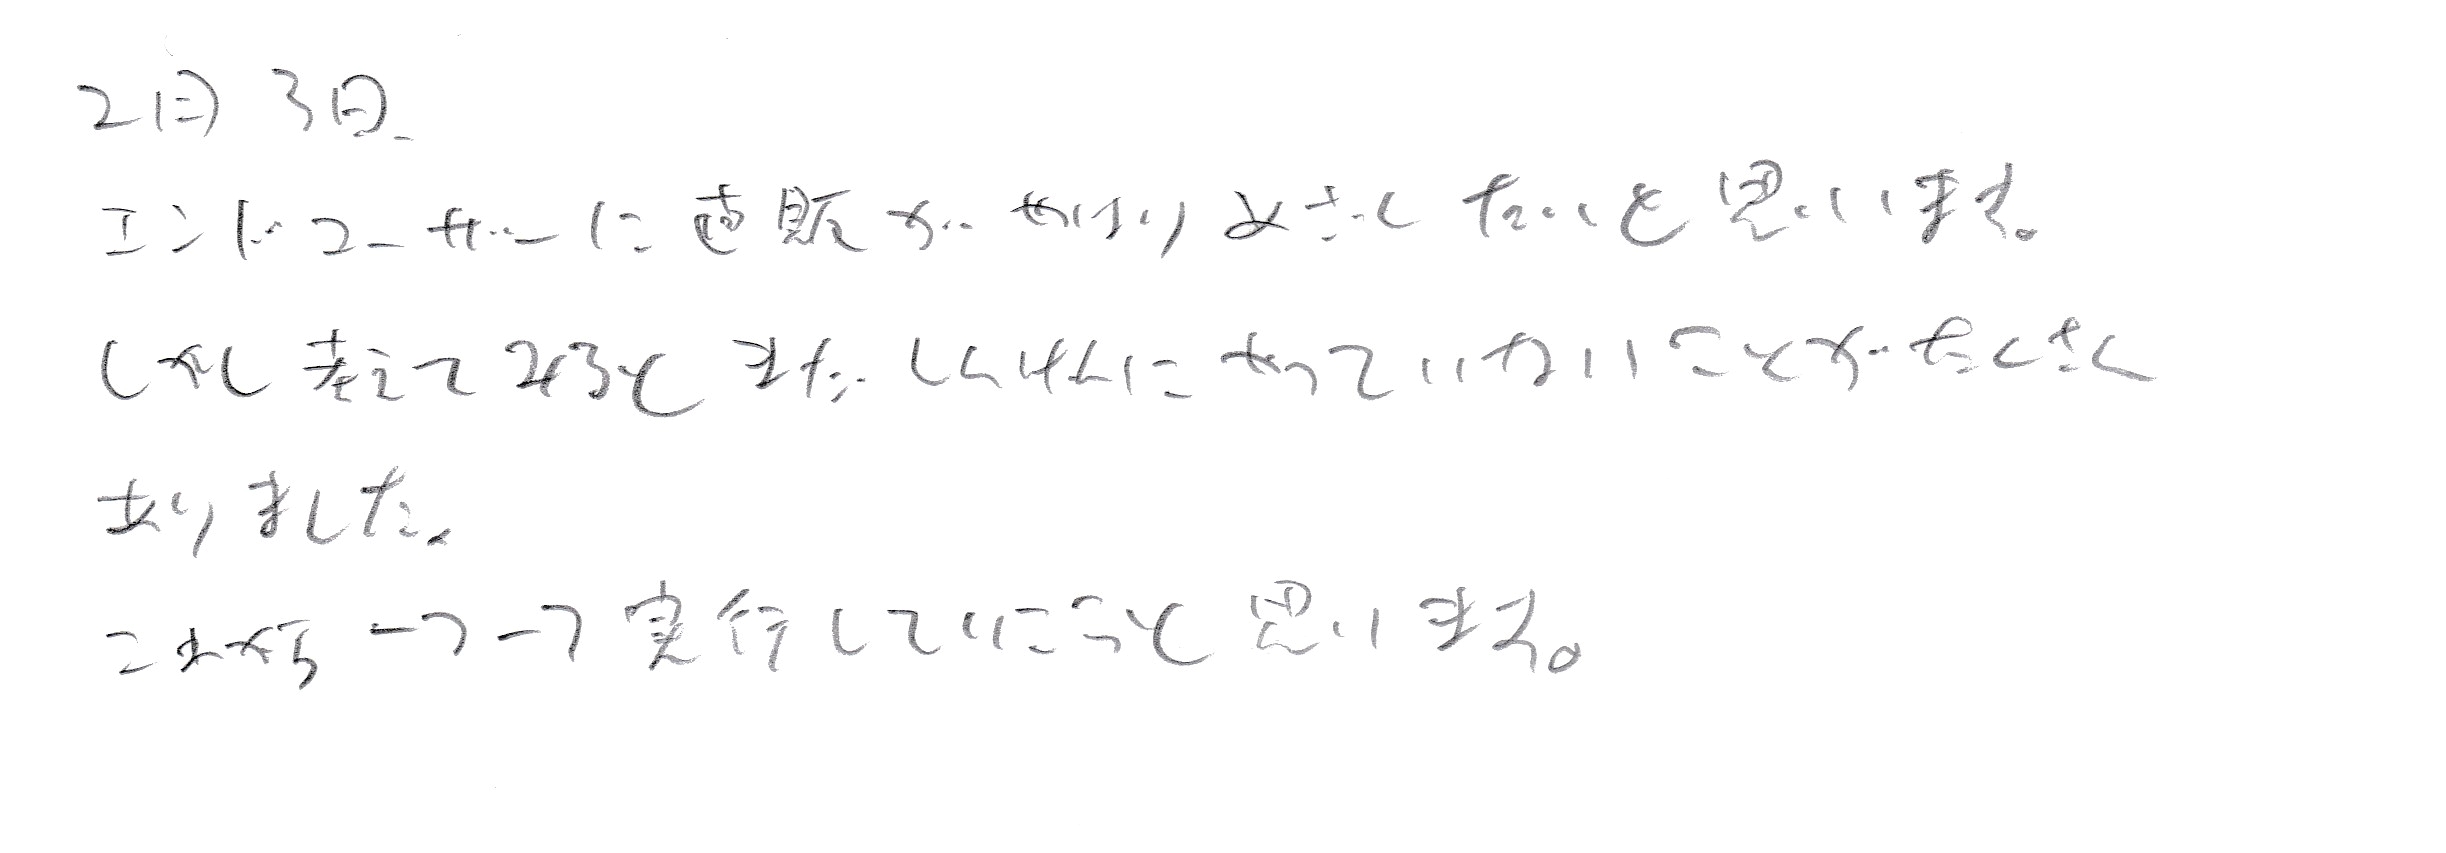 2日3日
エンドユーザーに直販がやはりめざしたいと思います。
しかし考えてみるとまだしんけんにやっていないことがたくさん
ありました。
これから一つ一つ実行していこうと思います。